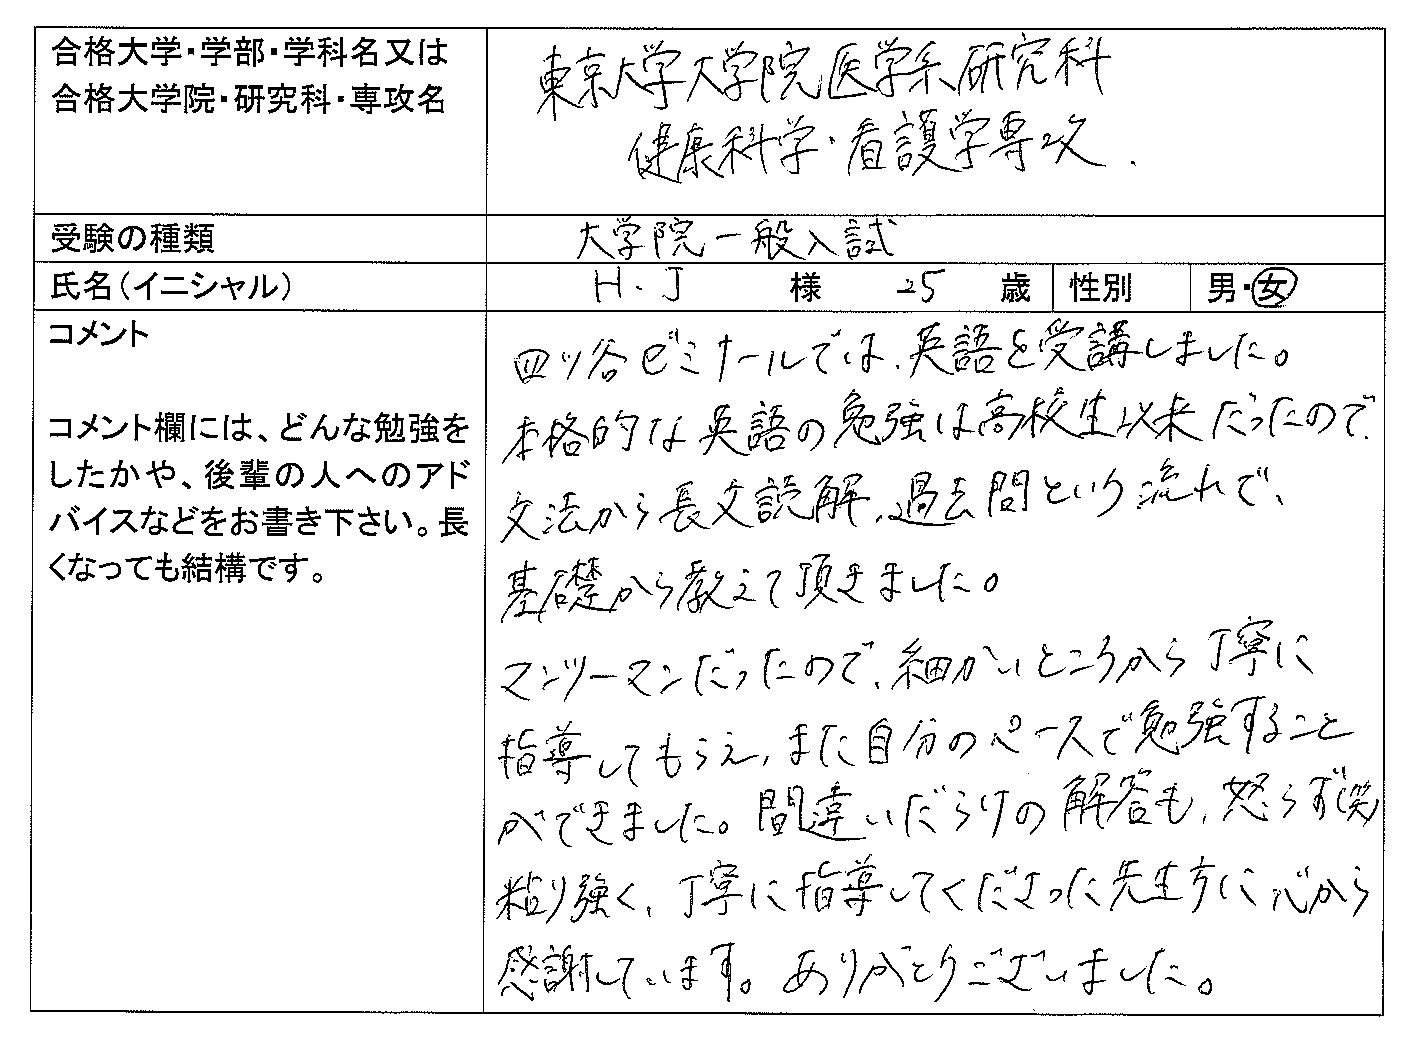 合格大学・学部・学科名又は
合格大学院・研究科・専攻名
東京大学大学院医学系研究科
健康科学・看護学専攻.
受験の種類
大学院一般入試
氏名(イニシャル)
H.J 様 25 歳 性別 男・女
コメント
コメント欄には、どんな勉強を
したかや、後輩の人へのアド
バイスなどをお書き下さい。長
くなっても結構です。
四ツ谷ゼミナールでは、英語を受講しました。
本格的な英語の勉強は高校生以来だったので、
文法から長文読解、過去問という流れで、
基礎から教えて頂きました。
マンツーマンだったので、細かいところから丁寧に
指導してもらえ、また自分のペースで勉強すること
ができました。間違いだらけの解答も、怒らず(笑)
粘り強く、丁寧に指導してくださった先生方に心から
感謝しています。ありがとうございました。